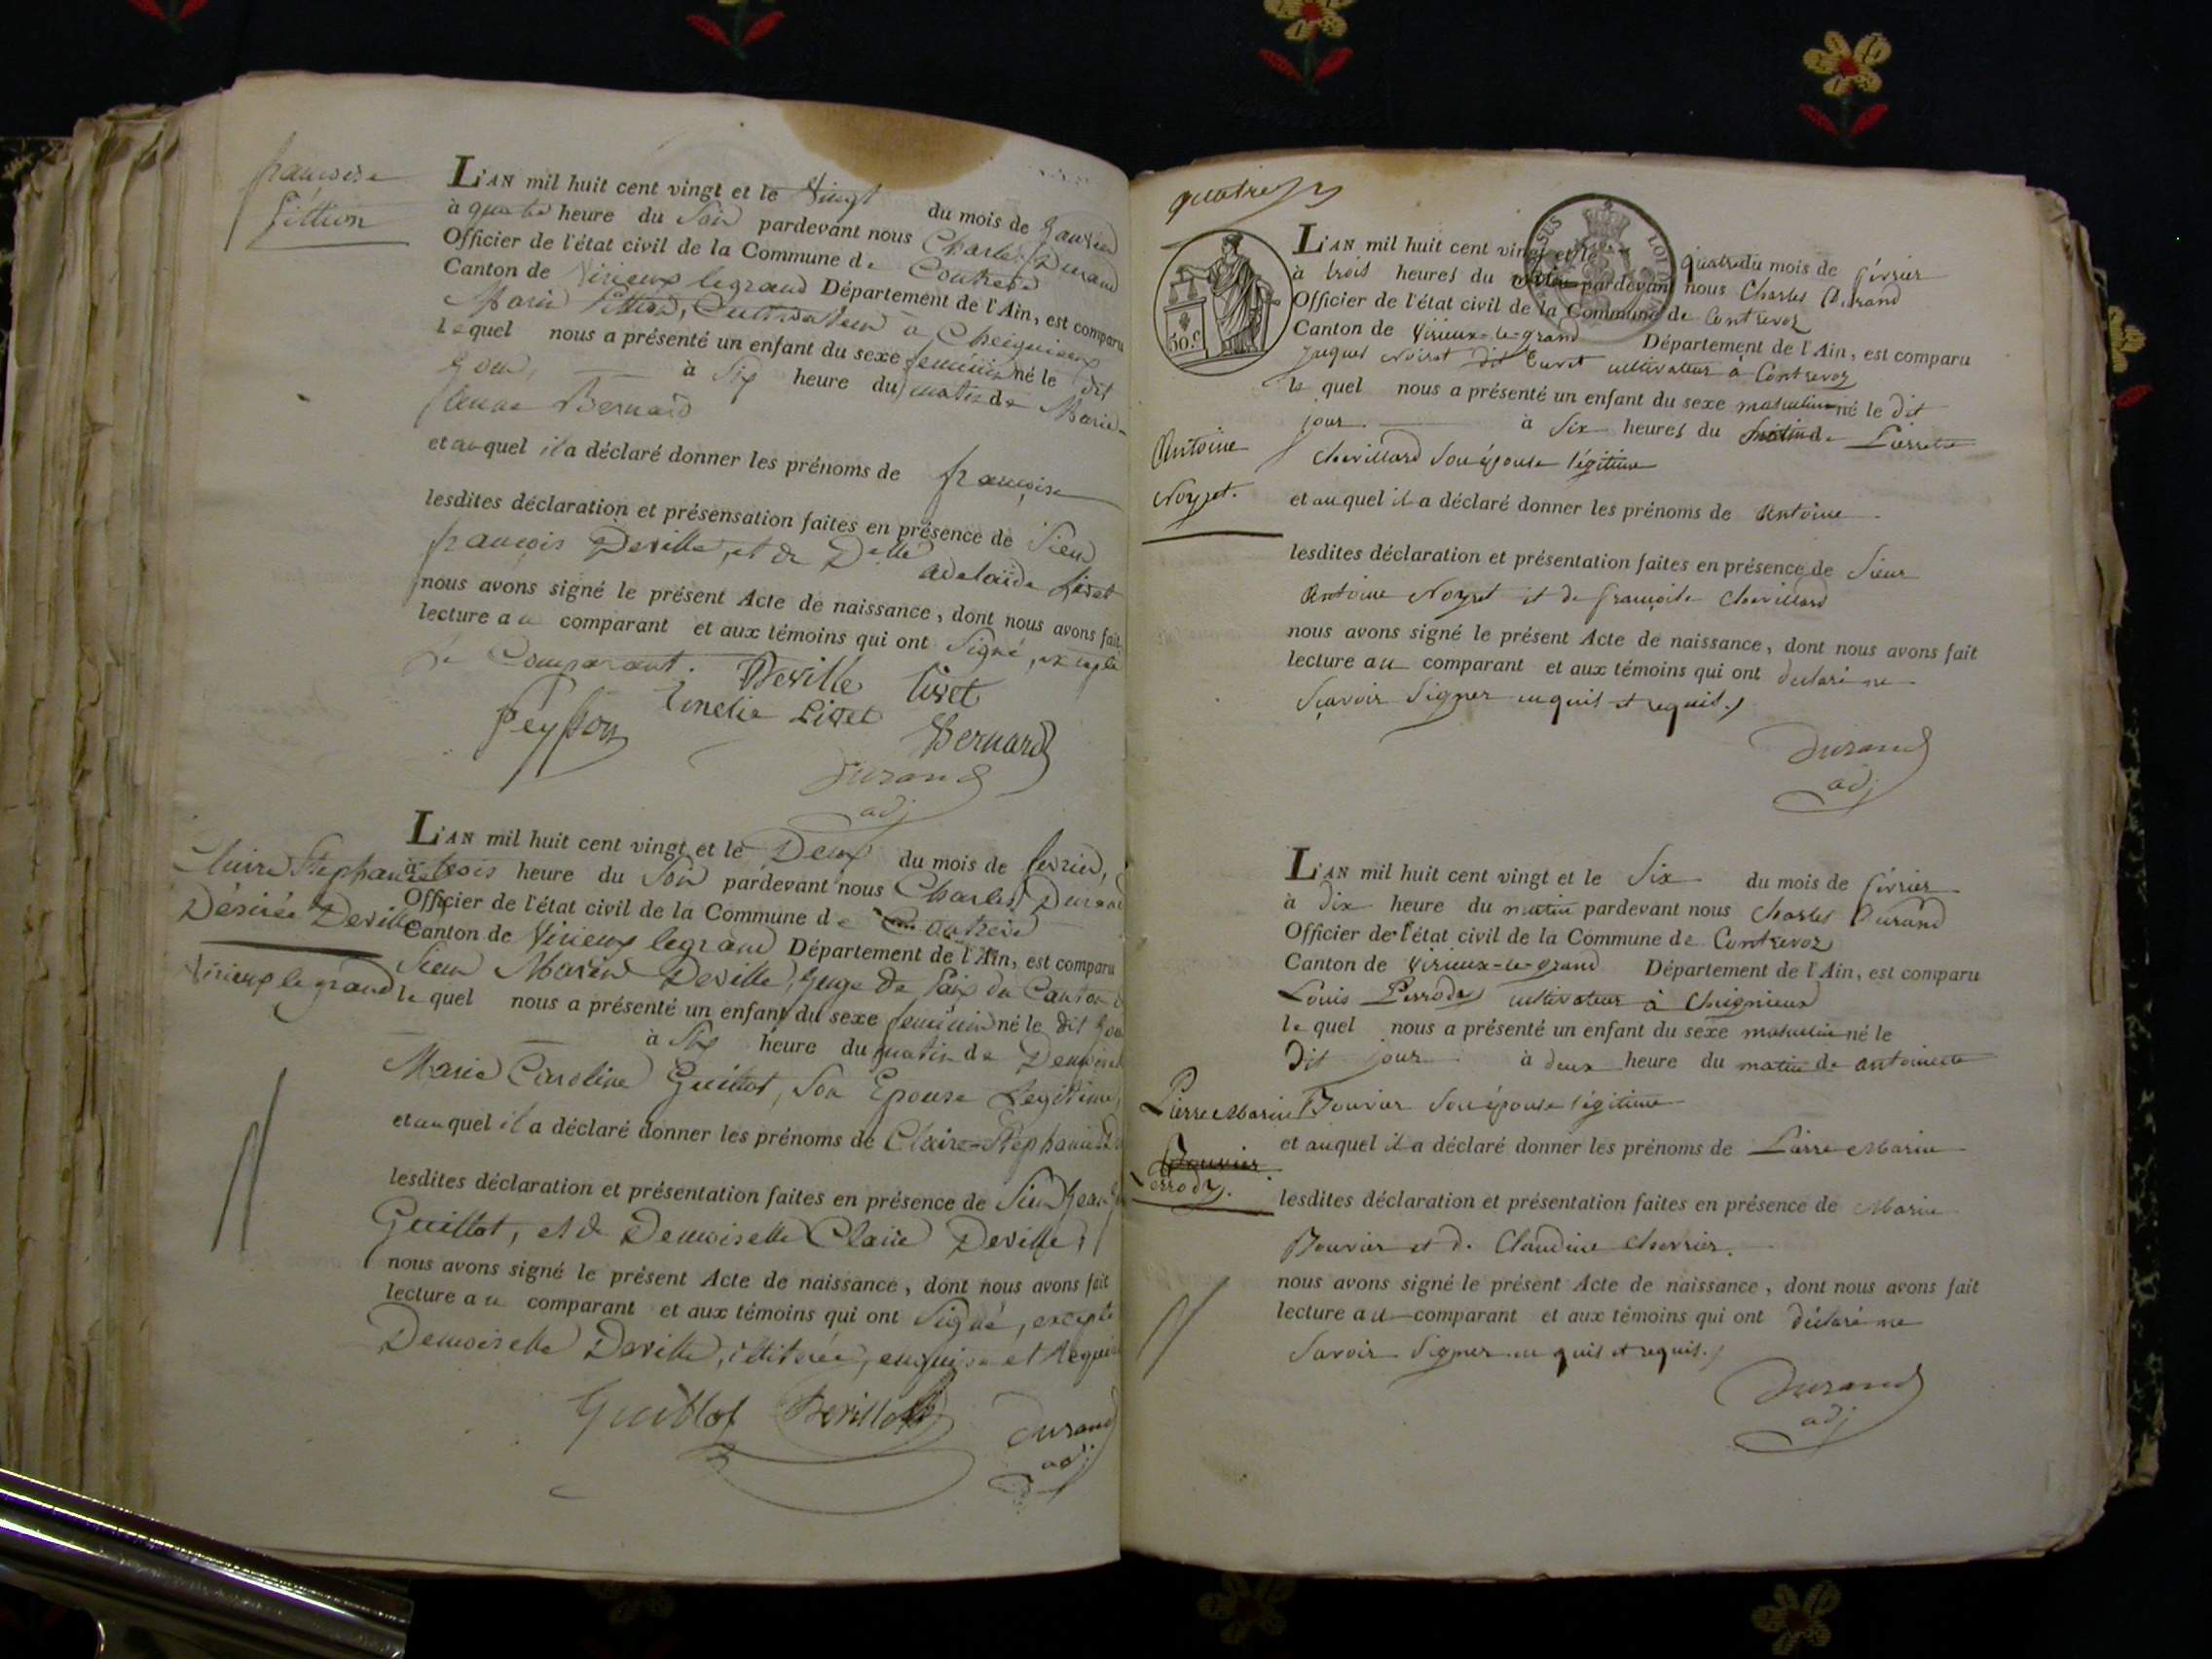 françoise
Fittion
L'AN mil huit cent vingt et le Vingt du mois de Janvier
à quatre heure du Soir pardevant nous Charles Durand
Officier de l'état civil de la Commune de
Canton de Virieux legrand Département de l'Ain, est comparu
Marin Cultivateur à
le quel nous a présenté un enfant du sexe feminin né le dit
Jour, à Six heure du matin de Marie-
Bernard
et auquel il a déclaré donner les prénoms de françoise
lesdites déclaration et présensation faites en présence de Sieur
françois Deville, et de Delle adelaïde Livet
nous avons signé le présent Acte de naissance, dont nous avons fait
lecture au comparant et aux témoins qui ont Signé, excepté
le Comparant. Deville Livet
Peysson Emelie Livet Bernard
Durand
adj
Claire Stephanie
Désirée Deville
Virieux le grand
L'AN mil huit cent vingt et le Deux du mois de fevrier,
à trois heure du Soir pardevant nous Charles Durand
Officier de l'état civil de la Commune de
Canton de Virieux legrand Département de l'Ain, est comparu
Sieur Marin Deville, Juge de Paix du Canton
le quel nous a présenté un enfant du sexe feminin né le dit Jour
à Six heure du matin de
Marie Caroline Guillot, Son Epouse Legitime,
et auquel il a déclaré donner les prénoms de Claire-Stephanie
lesdites déclaration et présentation faites en présence de Sieur Jean
Guillot, et de Demoiselle Claire Deville,
nous avons signé le présent Acte de naissance, dont nous avons fait
lecture au comparant et aux témoins qui ont Signé, excepté
Demoiselle Deville, illiterée, enquise et Requise
Guillot Deville Durand
adj
quatre
50.C
L'AN mil huit cent vingt et le quatre du mois de février
à trois heures du pardevant nous Charles Durand
Officier de l'état civil de la Commune de Contrevoz
Canton de Virieux-le-grand Département de l'Ain, est comparu
Jacques Noiret dit cultivateur à Contrevoz
le quel nous a présenté un enfant du sexe masculin né le dit
jour. à Six heures du matin de Pierrette
Chevillard Son épouse légitime
Antoine
Noyret.
et auquel il a déclaré donner les prénoms de Antoine
lesdites déclaration et présentation faites en présence de Sieur
Antoine Noyret et de françoise Chevillard
nous avons signé le présent Acte de naissance, dont nous avons fait
lecture au comparant et aux témoins qui ont déclaré ne
Sçavoir Signer enquis et requis.
Durand
adj
L'AN mil huit cent vingt et le Six du mois de février
à dix heure du matin pardevant nous Charles Durand
Officier de l'état civil de la Commune de Contrevoz
Canton de Virieux-le-grand Département de l'Ain, est comparu
Louis Perrody cultivateur à Cheignieux
le quel nous a présenté un enfant du sexe masculin né le
Dit jour à deux heure du matin de antoinette
Bouvier Son épouse légitime
Pierre Marin
Bouvier
Perrody.
et auquel il a déclaré donner les prénoms de Pierre Marin
lesdites déclaration et présentation faites en présence de Marin
Bouvier et de Claudine
nous avons signé le présent Acte de naissance, dont nous avons fait
lecture au comparant et aux témoins qui ont déclaré ne
Savoir Signer enquis et requis.
Durand
adj